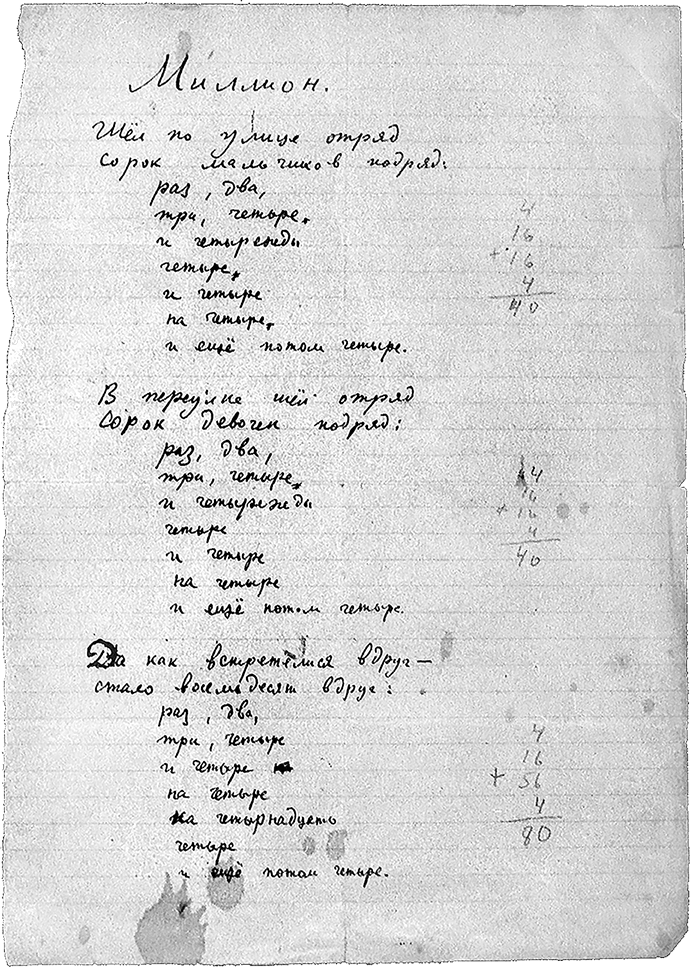 Миллион.
Шёл по улице отряд
Сорок мальчиков подряд:
раз, два,
три, четыре,
и четырежды
четыре,
и четыре
на четыре,
и ещё потом четыре.
4
16
+ 16
4
40
В переулке шёл отряд
Сорок девочек подряд:
раз, два,
три, четыре,
и четырежды
четыре
и четыре
на четыре
и ещё потом четыре.
4
16
+ 16
4
40
Да как встретилися вдруг —
стало восемьдесят вдруг:
раз, два,
три, четыре
и четыре
на четыре
на четырнадцать
четыре
и ещё потом четыре.
4
16
+ 56
4
80